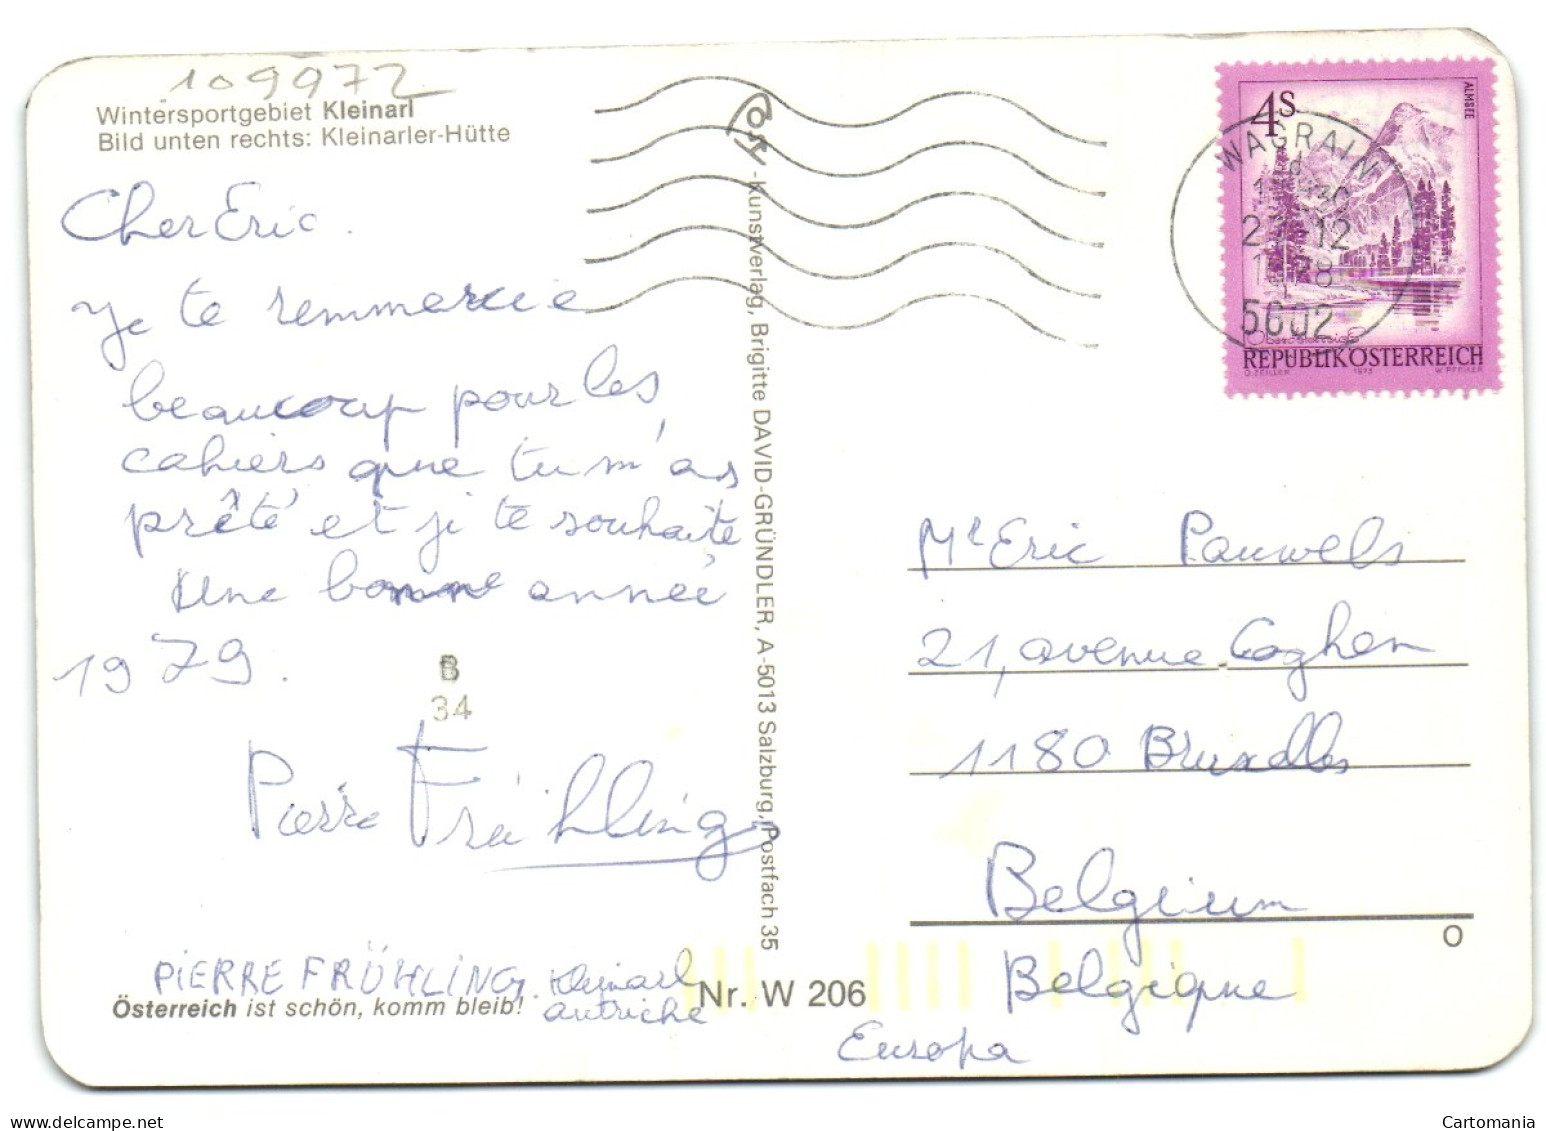 109972
Wintersportgebiet Kleinarl
Bild unten rechts: Kleinarler-Hütte
Cher Eric.
Je te remmercie
beaucoup pour les
cahiers que tu m'as
prêté et je te souhaite
une bonne année
1979.
B
34
Pierre Frühling
PIERRE FRÜHLING. Kleinarl
autriche
Österreich ist schön, komm bleib!
Nr. W 206
-Kunstverlag, Brigitte DAVID-GRÜNDLER, A-5013 Salzburg, Postfach 35
4S
ALMSEE
WAGRAIN
5602
REPUBLIK ÖSTERREICH
O. ZEILLER 1973 W. PFEILER
Mr Eric Pauwels
21, avenue Coghen
1180 Bruxelles
Belgium
O
Belgique
Europa
Cartomania
delcampe.net